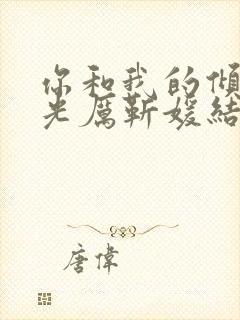 你和我的傾
光厲靳媛結
唐偉